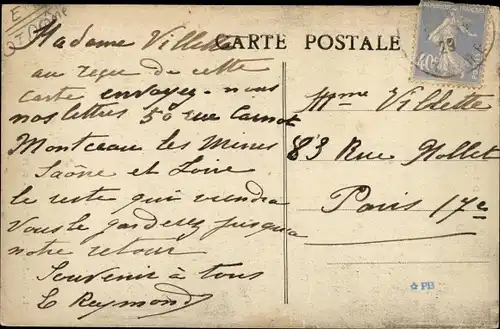 CARTE POSTALE
Madame Villette
au reçu de cette
carte envoyez-nous
nos lettres 50 rue Carnot
Montceau les Mines
Saône et Loire
le reste qui viendra
vous le garderez jusqua
notre retour
Souvenir à tous
E Raymond
Mme Villette
83 Rue Nollet
Paris 17e
40c
☆ PB